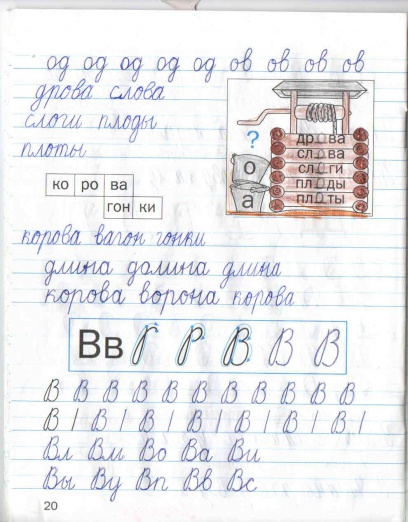 од од од од од ов ов ов ов
дрова слова
слоги плоды
плоты
?
о
а
дрва
сл ва
сл ги
пл ды
пл ты
ко ро ва
гон ки
корова вагон гонки
длина долина длина
корова ворона корова
Вв В В
В В В В В В В В В В
В | В | В | В | В | В | В |
Вл Вм Во Ва Ви
Вы Ву Вп Вв Вс
20